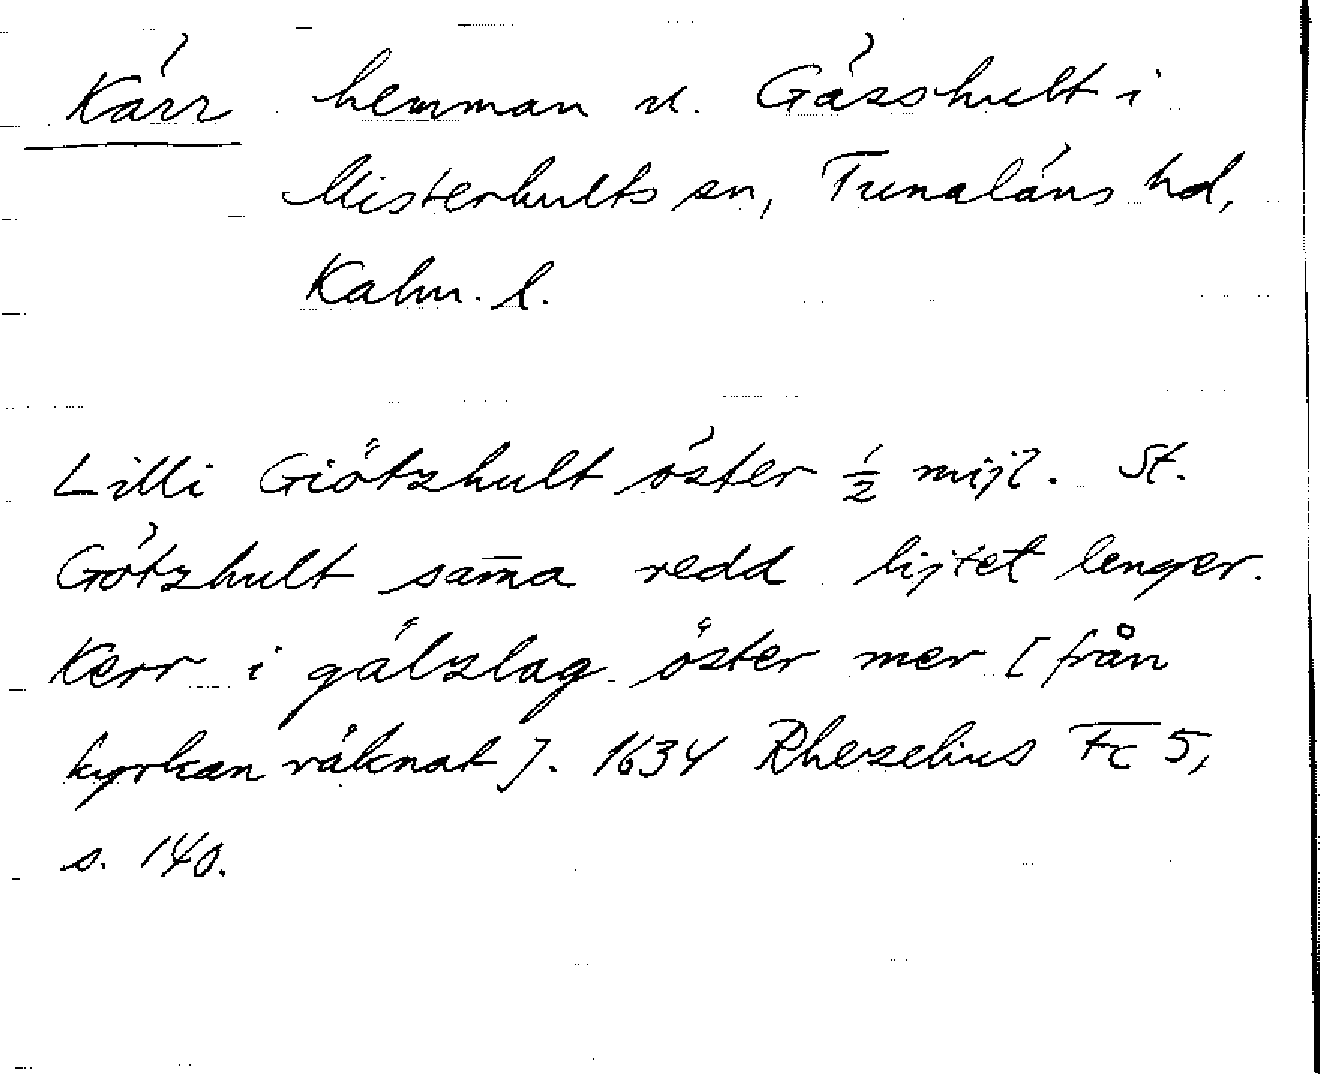 Kärr hemman v. Gässhult i
Misterhults sn, Tunaläns hd,
Kalm. l.
Lilli Giötzhult öster ½ mijl. St.
Götzhult sam̄a redd lijtet lenger.
Kerr i gälzlag öster mer [från
kyrkan räknat]. 1634 Rhezelius Fc 5,
s. 140.